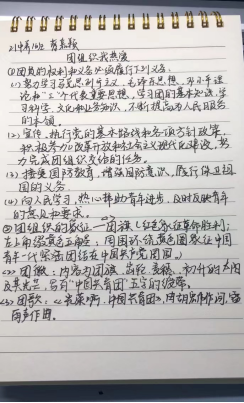 团组织我热爱
①团员的权利和义务必须履行下列义务:
(1)努力学习马克思列宁主义、毛泽东思想、邓小平理
论和"三个代表"重要思想,学习团的基本知识,学
习科学、文化和业务知识,不断提高为人民服务
的本领。
(2)宣传、执行党的基本路线和各项方针政策,
积极参加改革开放和社会主义现代化建设,努
力完成团组织交给的任务。
(3)接受国防教育,增强国防意识,履行保卫祖
国的义务
(4)向人民学习,热心帮助青年进步,及时反映青年
的意见和要求。
②团组织的象征——团旗(红色象征革命胜利;
左上角缀黄色五角星,周围环绕黄色圆圈象征中国
青年一代紧密团结在中国共产党周围。)
(2)团徽:内容为团旗、齿轮、麦穗、初升的太阳
及其光芒,写有"中国共青团"五字的绶带。
(3)团歌:《光荣啊,中国共青团》,胡宏伟作词,雷
雨声作曲。